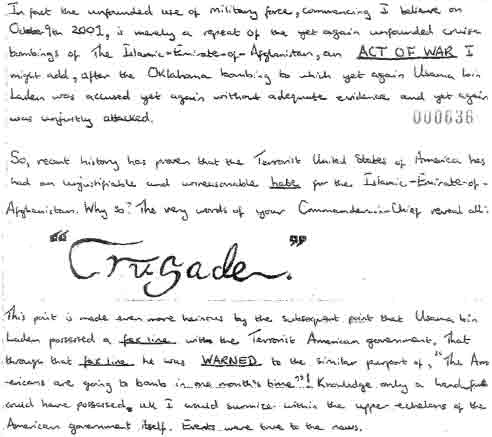 In fact the unfounded use of military force, commencing I believe on
October 9th 2001, is merely a repeat of the yet again unfounded cruise
bombings of The Islamic-Emirate-of-Afghanistan, an ACT OF WAR I
might add, after the Oklahoma bombing to which yet again Usama bin
Laden was accused yet again without adequate evidence and yet again
was unjustly attacked.
000636
So, recent history has proven that the Terrorist United States of America has
had an unjustifiable and unreasonable hate for the Islamic-Emirate-of-
Afghanistan. Why so? The very words of your Commander-in-Chief reveal all:
"Crusade."
This point is made even more heinous by the subsequent point that Usama bin
Laden possessed a fax line with the Terrorist American government. That
through that fax line he was WARNED to the similar purport of, "The Am-
ericans are going to bomb in one month's time"! Knowledge only a handful
could have possessed, I would surmise within the upper-echelons of the
American government itself. Events were true to the news.